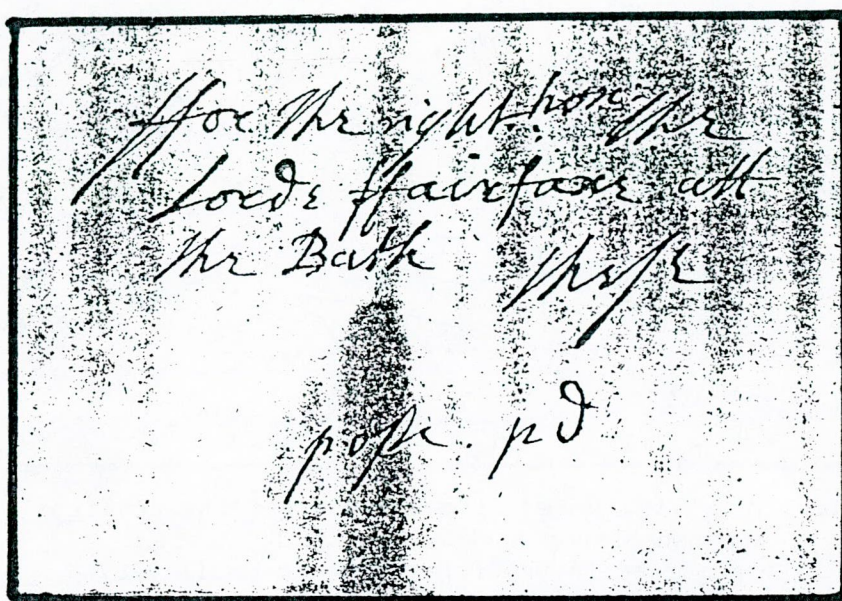 ffor the right hon the
lorde ffairfaxe att
the Bath these
post pd